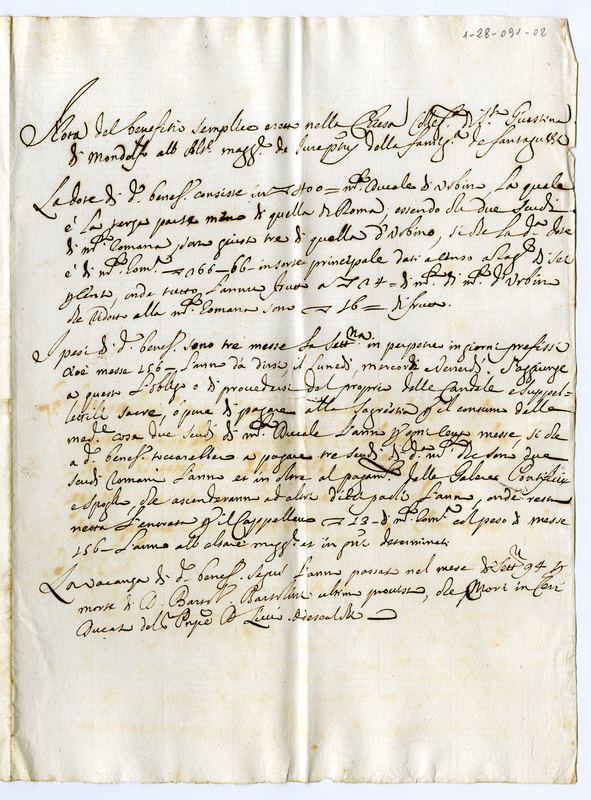 1-28-091-02
Nota del benefitio semplice eretto nella Chiesa Colleg.ta di S.ta Giustina
di Mondolfo all' Alt.e magg.e de Jurepatr.s della famigl.a de
La dote di d.o benef.o consiste in 400 = m.ta Ducale di Urbino, La quale
è La terza parte meno di quella di Roma, essendo che due Scudi
di m.ta Romana, son giusto tre di quella d'Urbino, si che La d.a dote
è di m.ta Rom.a 266-66 in sorte principale dati a Censo a Rag.e di sei
per Cento, onde tutto l'annuo frutto a 24 = di m.ta di m.ta d'Urbino
che ridotto alla m.ta Romana sono 16 = di frutto.
I pesi di d.o benef.o sono tre messe La Sett.na in perpetuo in giorni prefissi
cioè messe 156 = l'anno da dirsi, il Lunedì, mercordì e Venerdì. S'aggiunge
a questo L'obligo o di provedersi del proprio delle Candele e suppel=
lettili sacre, ò pure di pagare alla Sagrestia p. il consumo delle
med.e cose due Scudi di m.ta Ducale L'anno p. ogni messe si che
a d.o benef.o toccarebbe a pagare tre scudi di d.a m.ta che son due
scudi Romani L'anno et in oltre al pagam.to delle Galere Pontificie
e spogli, che ascenderanno ad altri dieci paoli L'anno, onde resta
netta L'entrata p. il Cappellano 13 = di m.ta Rom.a col peso di messe
156 = L'anno all' altare magg.e et in g.ni determinati
La vacanza di d.o benef.o seguì l'anno passato nel mese di Sett.re 94 p.
morte di D. Bartol. Bartolini ultimo provisto, che Morì in Ceri
Ducat. dell' Pn̄pe D. Livio Odescalchi